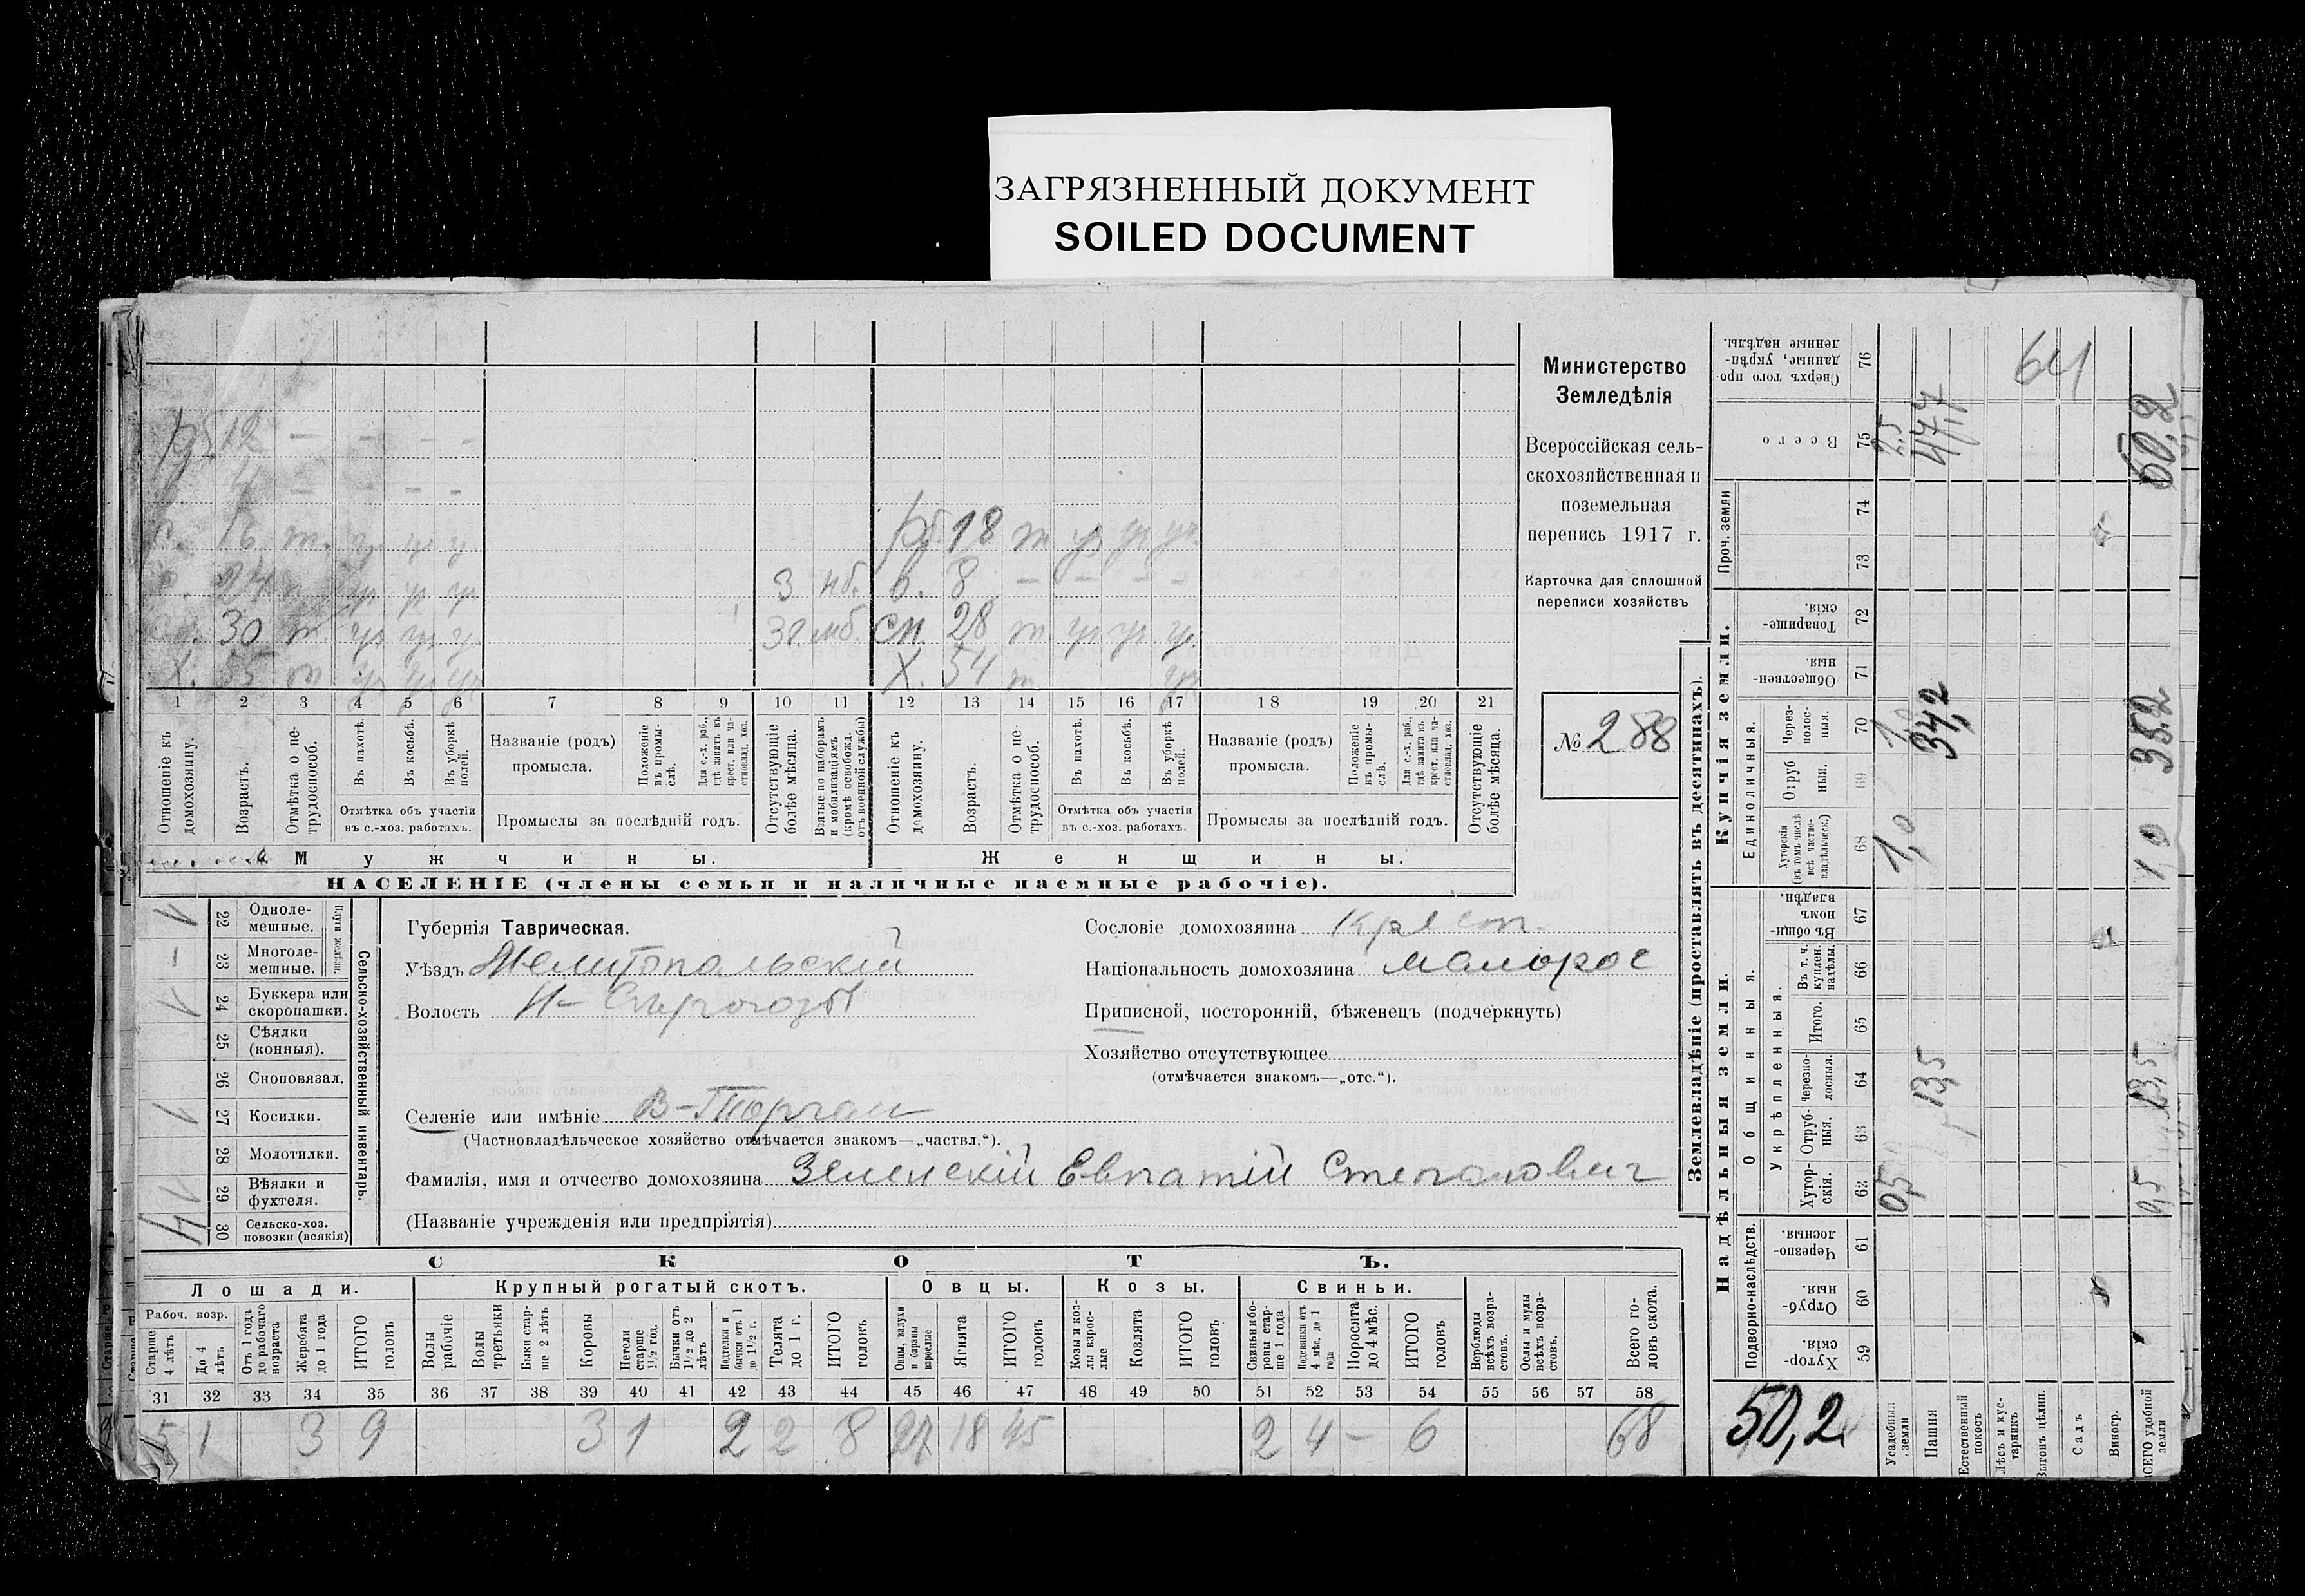 ЗАГРЯЗНЕННЫЙ ДОКУМЕНТ
SOILED DOCUMENT
12 — — — —
4 — — — —
16 т. ур ур ур
18 т ур ур ур
3 нб. в. 8 — — — —
30 т ур ур ур
мб. сн. 28 т ур ур ур
Х. 55 т ур ур ур
Х. 54 т ур
1 2 3 4 5 6 7 8 9 10 11 12 13 14 15 16 17 18 19 20 21
Отношеніе къ домохозяину.
Возрастъ.
Отмѣтка о нетрудоспособ.
Въ пахотѣ.
Въ косьбѣ.
Въ уборкѣ полей.
Отмѣтка объ участіи
въ с.-хоз. работахъ.
Названіе (родъ)
промысла.
Положеніе въ промыслѣ.
Для с.-х. раб., гдѣ занятъ въ крест. или частновлад. хоз.
Промыслы за послѣдній годъ.
Отсутствующіе болѣе мѣсяца.
Взятые по наборамъ и мобилизаціямъ (кромѣ освобожд. отъ военной службы)
Отношеніе къ домохозяину.
Возрастъ.
Отмѣтка о нетрудоспособ.
Въ пахотѣ.
Въ косьбѣ.
Въ уборкѣ полей.
Отмѣтка объ участіи
въ с.-хоз. работахъ.
Названіе (родъ)
промысла.
Положеніе въ промыслѣ.
Для с.-х. раб., гдѣ занята въ крест. или частновлад. хоз.
Промыслы за послѣдній годъ.
Отсутствующіе болѣе мѣсяца.
Мужчины. Женщины.
НАСЕЛЕНІЕ (члены семьи и наличные наемные рабочіе).
Министерство
Земледѣлія
Всероссійская сель-
скохозяйственная и
поземельная
перепись 1917 г.
Карточка для сплошной
переписи хозяйствъ
№ 288
22 Одноле-
мешные.
23 Многоле-
мешные.
Плуги желѣзн.
24 Буккера или
скоропашки.
25 Сѣялки
(конныя).
26 Сноповязал.
27 Косилки.
28 Молотилки.
29 Вѣялки и
фухтеля.
30 Сельско-хоз.
повозки (всякія)
Сельско-хозяйственный инвентарь.
Губернія Таврическая.
Уѣздъ Мелитопольскій
Волость Н- Сѣрогозы
Селеніе или имѣніе В-Торгаи
(Частновладѣльческое хозяйство отмѣчается знакомъ—„частвл.“).
Фамилія, имя и отчество домохозяина Зеленскій Евпатій Степанович
(Названіе учрежденія или предпріятія)
Сословіе домохозяина Крест.
Національность домохозяина малорос
Приписной, посторонній, бѣженецъ (подчеркнуть)
Хозяйство отсутствующее
(отмѣчается знакомъ—„отс.“).
СКОТЪ.
Лошади. Крупный рогатый скотъ. Овцы. Козы. Свиньи.
Рабоч. возр.
Старше 4 лѣтъ
До 4 лѣтъ
Отъ 1 года до рабочаго возраста
Жеребята до 1 года
ИТОГО головъ
Волы рабочіе
Волы третьяки
Быки старше 2 лѣтъ
Коровы
Петели старше 1½ год.
Бычки отъ 1½ до 2 лѣтъ
Подтелки и бычки отъ 1 до 1½ г.
Телята до 1 г.
ИТОГО головъ
Овцы, валухи и бараны взрослые
Ягнята
ИТОГО головъ
Козы и козлы взрослые
Козлята
ИТОГО головъ
Свиньи и боровы старше 1 года
Подсвинки отъ 4 мѣс. до 1 года
Поросята до 4 мѣс.
ИТОГО головъ
Верблюды всѣхъ возрастовъ.
Ослы и мулы всѣхъ возрастовъ.
Всего головъ скота.
31 32 33 34 35 36 37 38 39 40 41 42 43 44 45 46 47 48 49 50 51 52 53 54 55 56 57 58
5 1 3 9 3 1 2 2 8 27 18 45 2 4 — 6 68
Землевладѣніе (проставлять въ десятинахъ).
Купчія земли.
Надѣльныя земли.
Сверхъ того проданные, укрѣпленные надѣлы. 76 64
Всего 75 2,5 47,7 50,2
Проч. земли 74
73
Товарищескія. 72
Общественныя. 71
Единоличныя.
Черезполосныя. 70 34,2 35,2
Отрубныя. 69
Хуторскія (въ томъ числѣ всѣ частновладѣльческ.) 68 1,0 1,0
Общинныя.
Въ общинномъ владѣн. 67
Укрѣпленныя.
Въ т. ч. куплен. надѣлы. 66
Итого. 65
Черезполосныя. 64 13,5 13,5
Отрубныя. 63
Хуторскія. 62 0,5 0,5
Подворно-наслѣдств.
Черезполосныя. 61
Отрубныя. 60
Хуторскія. 59
50,2
Усадебныя земли
Пашня
Естественный покосъ
Лѣсъ и кустарникъ
Выгонъ цѣлин.
Садъ
Виногр.
ВСЕГО удобной земли